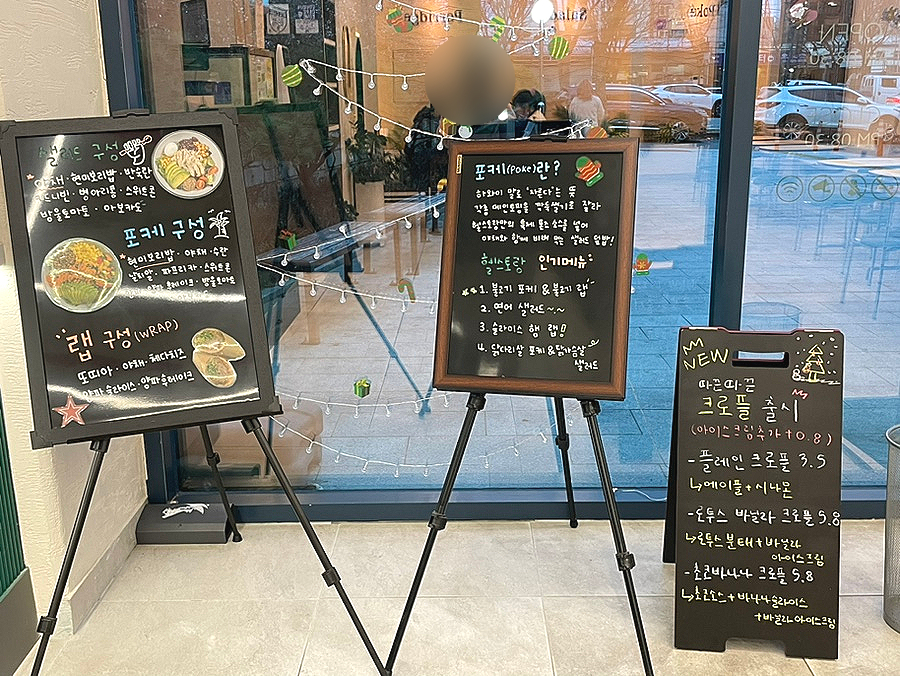 샐러드 구성
야채 · 현미보리밥 · 반숙란
병아리콩 · 스위트콘
방울토마토 · 아보카도
포케 구성
현미보리밥 · 야채 · 수란
날치알 · 파프리카 · 스위트콘
방울토마토
랩 구성(WRAP)
또띠아 · 야채 · 체다치즈
양파후레이크
포케(POKE)란?
하와이 말로 '자르다'는 뜻
각종 메인토핑을 깍둑썰기로 잘라
헬스토랑만의 특제 소스를 넣어
야채와 함께 비벼 먹는 샐러드 덮밥!
헬스토랑 인기메뉴
1. 불고기 포케 & 불고기 랩
2. 연어 샐러드~~
3. 슬라이스 햄 랩!!
4. 닭다리살 포케 & 닭가슴살
샐러드
NEW
따끈따끈
크로플 출시
(아이스크림추가 +0.8)
- 플레인 크로플 3.5
↳메이플+시나몬
- 로투스 바닐라 크로플 5.8
↳로투스분태+바닐라
아이스크림
- 초코바나나 크로플 5.8
↳초코소스+바나나슬라이스
+바닐라아이스크림